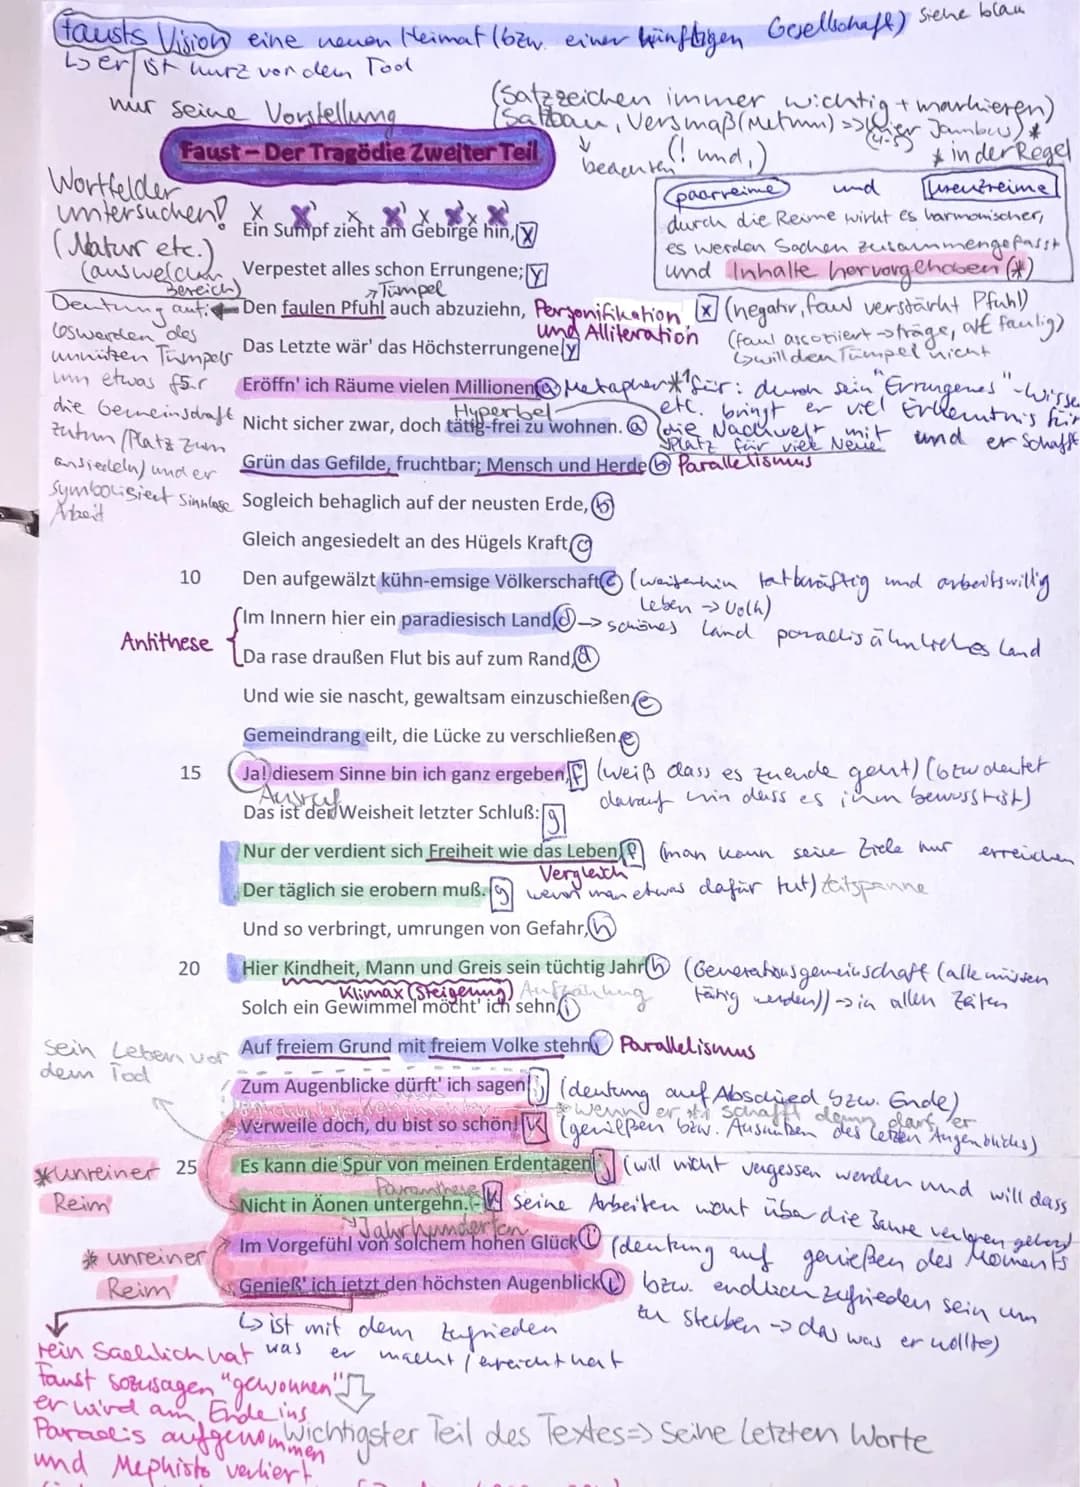 Fausts Vision eine neuen Heimat (bzw. einer künftigen Gesellschaft) siehe blau
↳ er ist kurz vor dem Tod
nur seine Vorstellung
(Satzzeichen immer wichtig + markieren)
(Satzbau, Versmaß (Metrum) => hier Jambus) *
(4-5)
* in der Regel
↓ beachten (! und ,)
Faust – Der Tragödie Zweiter Teil
paarreime und kreuzreime
durch die Reime wirkt es harmonischer,
es werden Sachen zusammengefasst
und Inhalte hervorgehoben (*)
Wortfelder
untersuchen!
(Natur etc.)
(aus welchem
Bereich)
X X' X X' X X' X X'
Ein Sumpf zieht am Gebirge hin, x
Verpestet alles schon Errungene; y
→ Tümpel
Den faulen Pfuhl auch abzuziehn, Personifikation und Alliteration x (negativ, faul verstärkt Pfuhl)
(faul assotiiert → träge, alt faulig)
↳ will den Tümpel nicht
Das Letzte wär' das Höchsterrungene y
Deutung auf:
loswerden des
unnützen Tümpels
um etwas für
die Gemeinschaft
zutun/Platz zum
ansiedeln) und er
symbolisiert Sinnlose
Arbeit
Eröffn' ich Räume vielen Millionen, a Metapher *¹ für: durch sein "Errungenes" - Wissen
etc. bringt er viel Erkenntnis für
die Nachwelt mit und er schafft
Platz für viele Neue
Hyperbel
Nicht sicher zwar, doch tätig-frei zu wohnen. a
Grün das Gefilde, fruchtbar; Mensch und Herde b Parallelismus
Sogleich behaglich auf der neusten Erde, b
Gleich angesiedelt an des Hügels Kraft, c
10 Den aufgewälzt kühn-emsige Völkerschaft. c (weiterhin tatkräftig und arbeitswillig
leben → Volk)
Antithese
Im Innern hier ein paradiesisch Land, d → schönes Land paradisähnliches Land
Da rase draußen Flut bis auf zum Rand, d
Und wie sie nascht, gewaltsam einzuschießen, e
Gemeindrang eilt, die Lücke zu verschließen. e
15 Ja! diesem Sinne bin ich ganz ergeben, f (weiß dass es zuende geht) (bzw deutet
darauf hin dass es ihm bewusst ist)
Ausruf
Das ist der Weisheit letzter Schluß: g
Nur der verdient sich Freiheit wie das Leben, f (man kann seine Ziele nur erreichen
Vergleich
Der täglich sie erobern muß. g wenn man etwas dafür tut) Zeitspanne
Und so verbringt, umrungen von Gefahr, h
20 Hier Kindheit, Mann und Greis sein tüchtig Jahr. h (Generationsgemeinschaft (alle müssen
tätig werden)) → in allen Zeiten
Klimax (Steigerung) Aufzählung
Solch ein Gewimmel möcht' ich sehn, i
Auf freiem Grund mit freiem Volke stehn. i Parallelismus
sein Leben vor
dem Tod
Zum Augenblicke dürft' ich sagen: j (deutung auf Abschied bzw. Ende)
* wenn er es schafft dann darf er
Verweile doch, du bist so schön! k (genießen bzw. Auskosten des letzten Augenblicks)
* unreiner
Reim
25 Es kann die Spur von meinen Erdentagen j (will nicht vergessen werden und will dass
Nicht in Äonen untergehn. – k seine Arbeiten nicht über die Jahre verloren gehen)
↘ Jahrhunderten
* unreiner
Reim
Im Vorgefühl von solchem hohen Glück l (deutung auf genießen des Moments
Genieß' ich jetzt den höchsten Augenblick. l bzw. endlich zufrieden sein um
zu sterben → das was er wollte)
↳ ist mit dem zufrieden
was er macht / erreicht hat
rein Sachlich hat
Faust sozusagen "gewonnen"
er wird am Ende ins
Paradis aufgenommen
und Mephisto verliert
wichtigster Teil des Textes => Seine letzten Worte